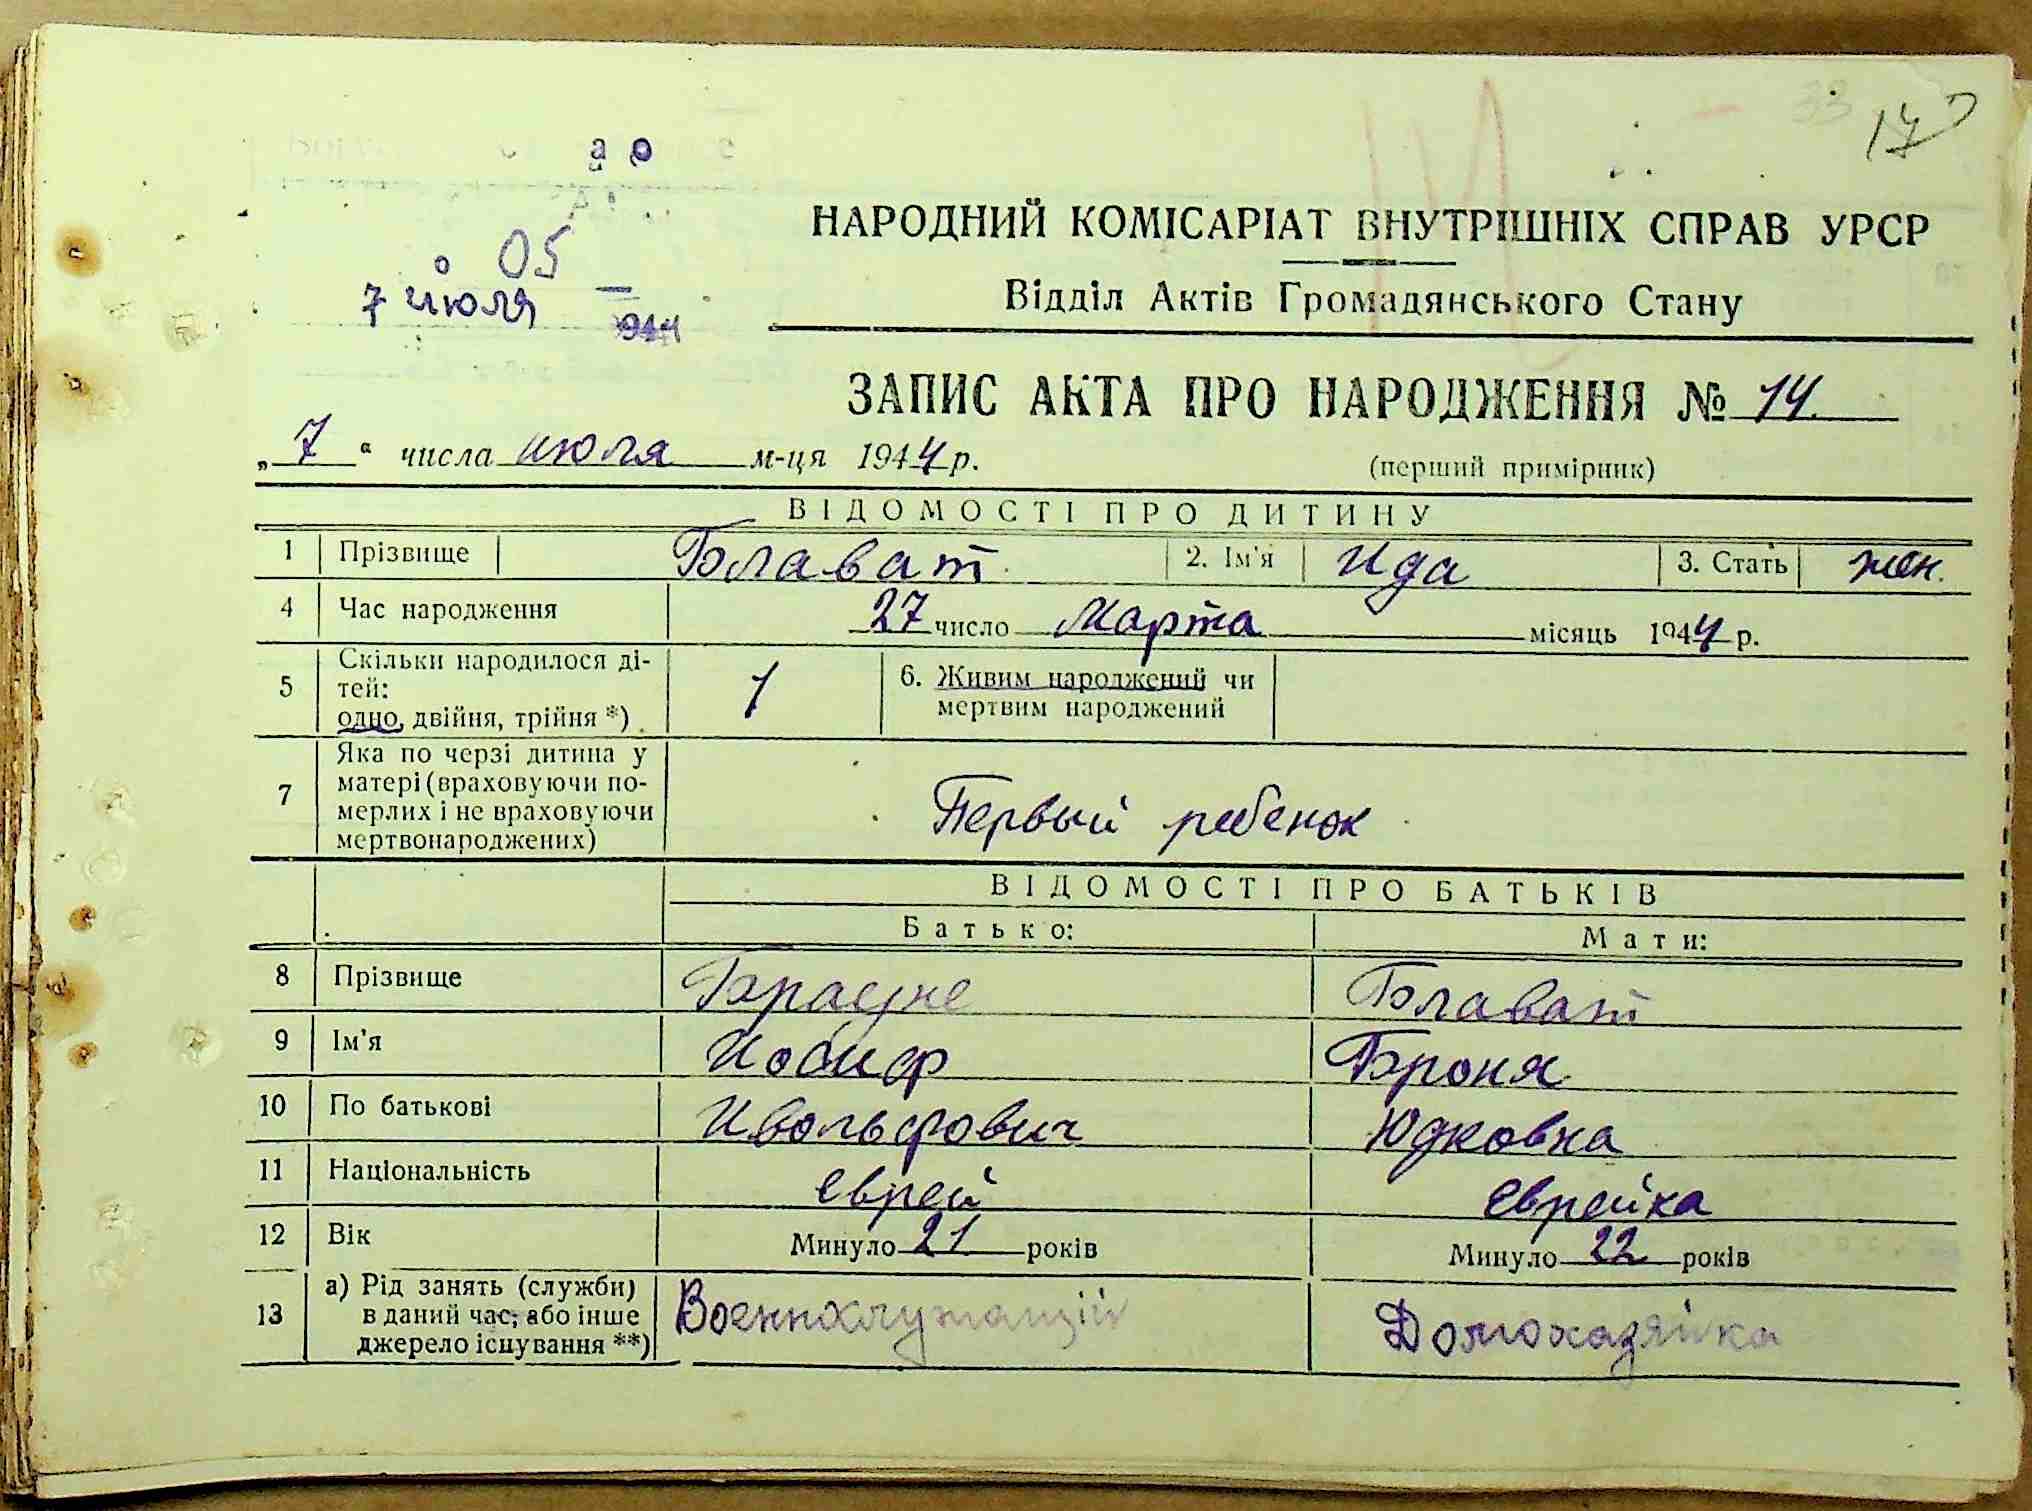 33
17
а о
05
7 июля
944
НАРОДНИЙ КОМІСАРІАТ ВНУТРІШНІХ СПРАВ УРСР
Відділ Актів Громадянського Стану
ЗАПИС АКТА ПРО НАРОДЖЕННЯ № 14.
„7“ числа июля м-ця 1944 р. (перший примірник)
ВІДОМОСТІ ПРО ДИТИНУ
1 Прізвище Блават 2. Ім'я Ида 3. Стать жен.
4 Час народження 27 число Марта місяць 1944 р.
5 Скільки народилося ді-
тей:
одно, двійня, трійня *) 1 6. Живим народжений чи
мертвим народжений
7 Яка по черзі дитина у
матері (враховуючи по-
мерлих і не враховуючи
мертвонароджених) Первый ребенок
ВІДОМОСТІ ПРО БАТЬКІВ
Батько: Мати:
8 Прізвище Брауне Блават
9 Ім'я Иосиф Броня
10 По батькові Ивольфович Юдковна
11 Національність еврей еврейка
12 Вік Минуло 21 років Минуло 22 років
13 а) Рід занять (служби)
в даний час, або інше
джерело існування **) Военнослужащій Домохазяйка